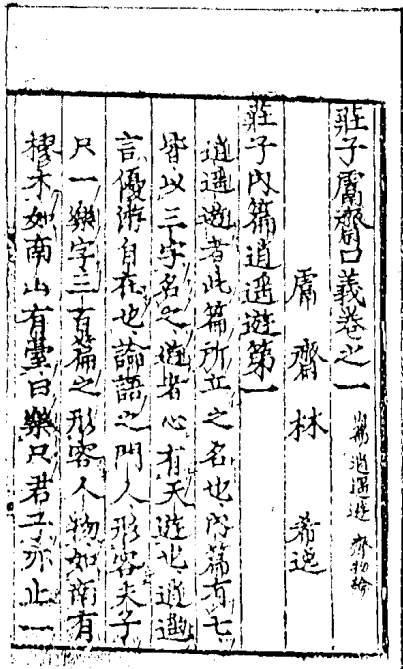 莊子鬳齋口義卷之一 內篇逍遙遊 齊物論
鬳齋林 希逸
莊子內篇逍遙遊第一
逍遙遊者此篇所立之名也內篇有七
皆以三字名之遊者心有天遊也逍遙
言優游自在也論語之門人形容夫子
只一樂字三百篇之形容人物如南有
樛木如南山有臺曰樂只君子亦止一